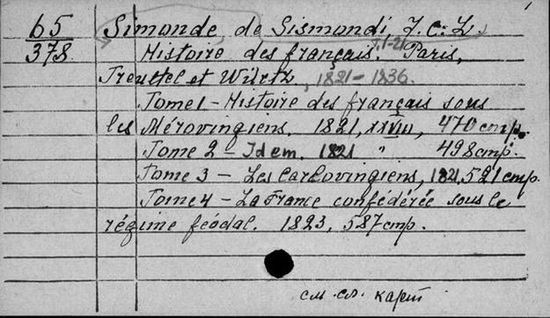 65
378
Simonde, de Sismondi, J. C. L.
Histoire des français. T. 1-21 Paris,
Treuttel et Würtz, 1821-1836.
Tome 1 - Histoire des français sous
les Mérovingiens. 1821, XXVIII, 470 стр.
Tome 2 - Idem. 1821 " 498 стр.
Tome 3 - Les Carlovingiens, 1821, 521 стр.
Tome 4 - La France confédérée sous le
régime féodal. 1823, 587 стр.
см. сл. карт.